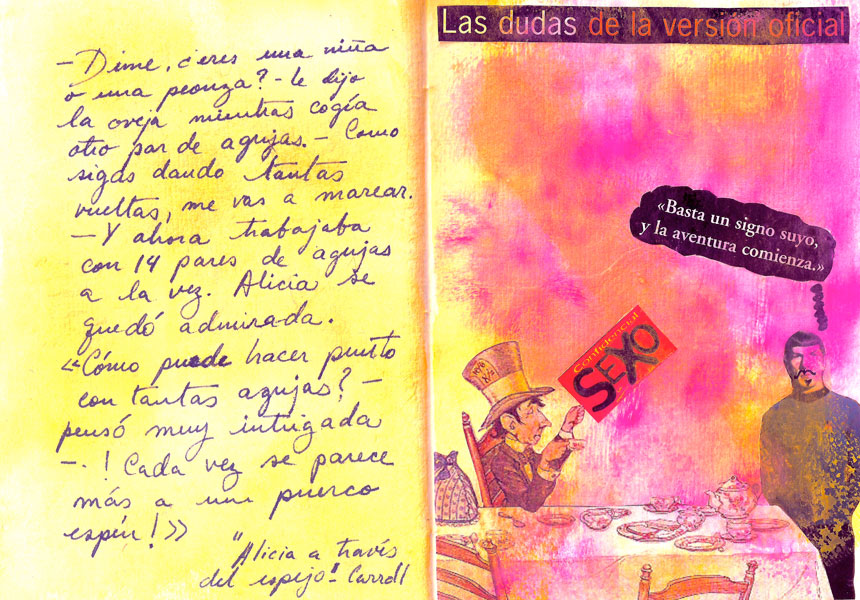 —Dime, ¿eres una niña
o una peonza? – le dijo
la oveja mientras cogía
otro par de agujas. – Como
sigas dando tantas
vueltas, me vas a marear.
—Y ahora trabajaba
con 14 pares de agujas
a la vez. Alicia se
quedó admirada.
«Cómo puede hacer punto
con tantas agujas? –
pensó muy intrigada
—. ! Cada vez se parece
más a un puerco
espín!»
"Alicia a través
del espejo" – Carroll
Las dudas de la versión oficial
«Basta un signo suyo,
y la aventura comienza.»
Confidencial
SEXO